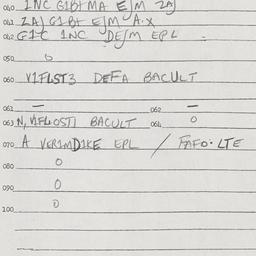 040 1NC G1Bt MA EJM ZAJ
041 ZAJ G1Bt EJM A.X
042 G1t 1NC DEJM EPL
050 0
060 V1FLST3 DEFA BACULT
061 — 062 —
063 N, V1FL0ST1 BACULT 064 0
070 A VER1MD1KE EPL / FAFO·LTE
080 0
090 0
100 0